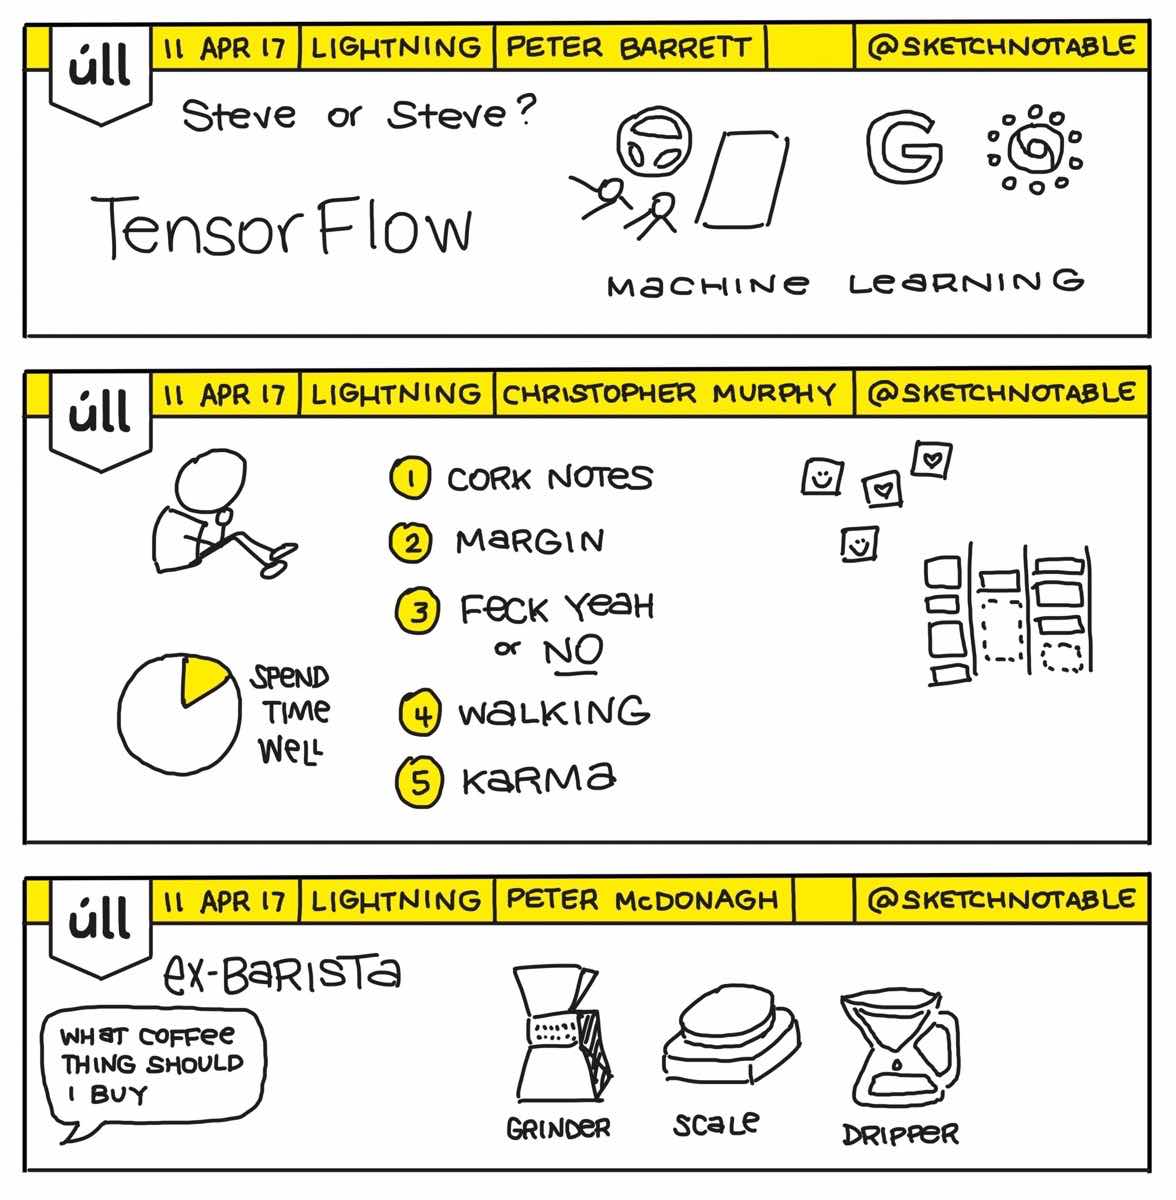 úll 11 APR 17 LIGHTNING PETER BARRETT @SKETCHNOTABLE
Steve or Steve?
TensorFlow
G
MACHINE LEARNING
úll 11 APR 17 LIGHTNING CHRISTOPHER MURPHY @SKETCHNOTABLE
1 CORK NOTES
2 MARGIN
3 FECK YEAH
or NO
4 WALKING
5 KARMA
SPEND
TIME
WELL
úll 11 APR 17 LIGHTNING PETER McDONAGH @SKETCHNOTABLE
ex-BARISTA
WHAT COFFEE
THING SHOULD
I BUY
GRINDER
SCALE
DRIPPER